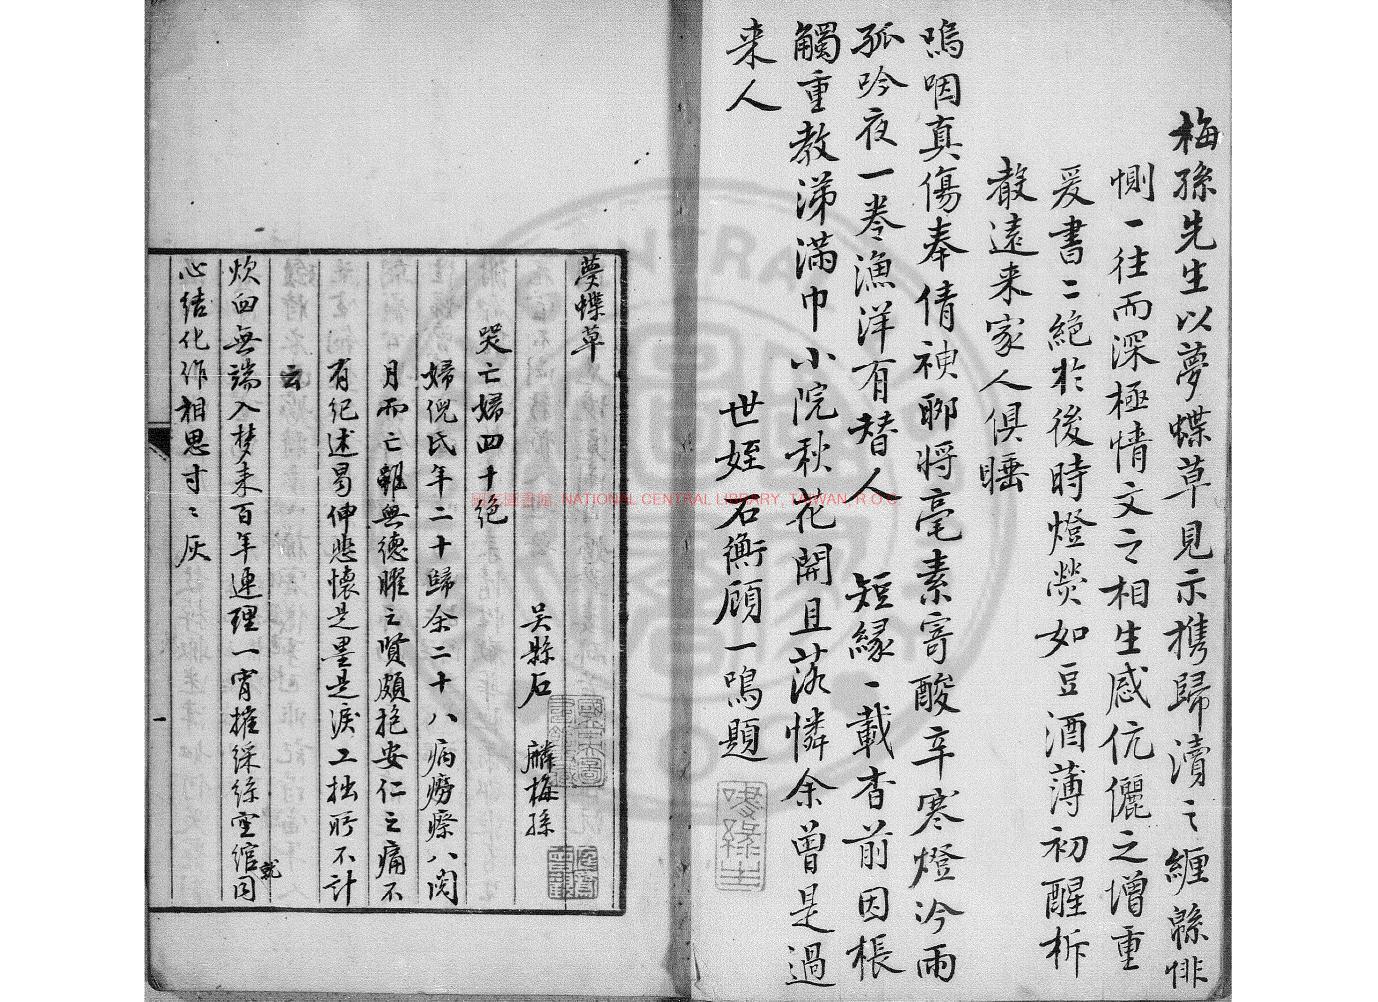 梅孫先生以夢蝶草見示携歸瀆之纏緜悱
惻一往而深極情文之相生感伉儷之增重
爰書二絕於後時燈熒如豆酒薄初醒柝
聲遠來家人俱睡
嗚咽真傷奉倩神聊將毫素寄酸辛寒燈沴雨
孤吟夜一卷漁洋有替人 短緣一載杳前因棖
觸重教涕滿巾小院秋花開且落憐余曾是過
来人
世姪石衡顧一鳴題
夢蝶草
吴縣石 麟梅孫
哭亡婦四十絕
婦倪氏年二十歸余二十八病癆瘵八閱
月而亡雖無德曜之賢頗抱安仁之痛不
有紀述曷伸悲懷是墨是淚工拙所不計
云
炊臼無端入梦来百年連理一宵摧綵絲空綰同
就
心結化作相思寸〻灰
一
國家圖書館, NATIONAL CENTRAL LIBRARY, TAIWAN, R.O.C